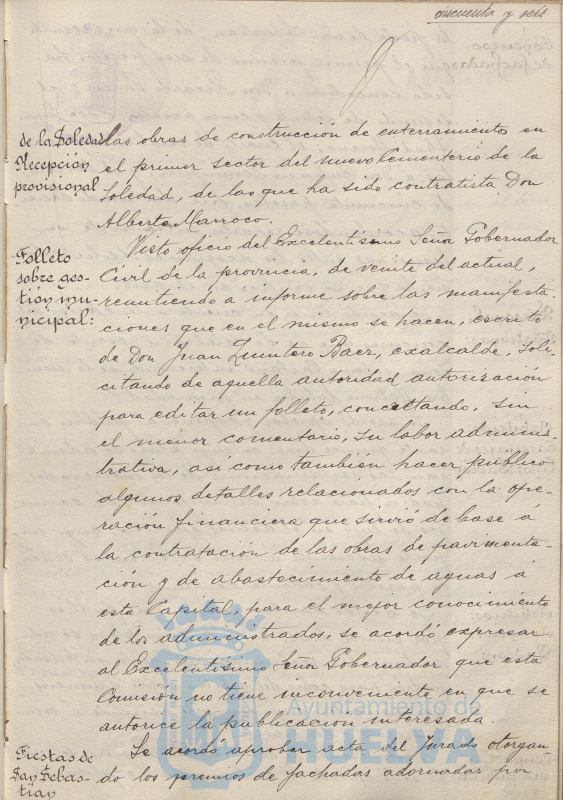 cincuenta y seis
de la Soledad
Recepción
provisional
las obras de construcción de enterramientos en
el primer sector del nuevo Cementerio de la
Soledad, de las que ha sido contratista Don
Alberto Marroco.
Folleto
sobre ges-
tión mu-
nicipal:
Visto oficio del Excelentísimo Señor Gobernador
Civil de la provincia, de veinte del actual,
remitiendo a informe sobre las manifesta-
ciones que en el mismo se hacen, escrito
de Don Juan Quintero Baez, exalcalde, soli-
citando de aquella autoridad autorización
para editar un folleto, concretando, sin
el menor comentario, su labor adminis-
trativa, así como también hacer público
algunos detalles relacionados con la ope-
ración financiera que sirvió de base á
la contratación de las obras de pavimenta-
ción y de abastecimiento de aguas á
esta Capital, para el mejor conocimiento
de los administrados, se acordó expresar
al Excelentísimo Señor Gobernador que esta
Comisión no tiene inconveniente en que se
autorice la publicación interesada.
Fiestas de
San Sebas-
tián
Se acordó aprobar acta del Jurado otorgan-
do los premios de fachadas adornadas por
Ayuntamiento de
HUELVA